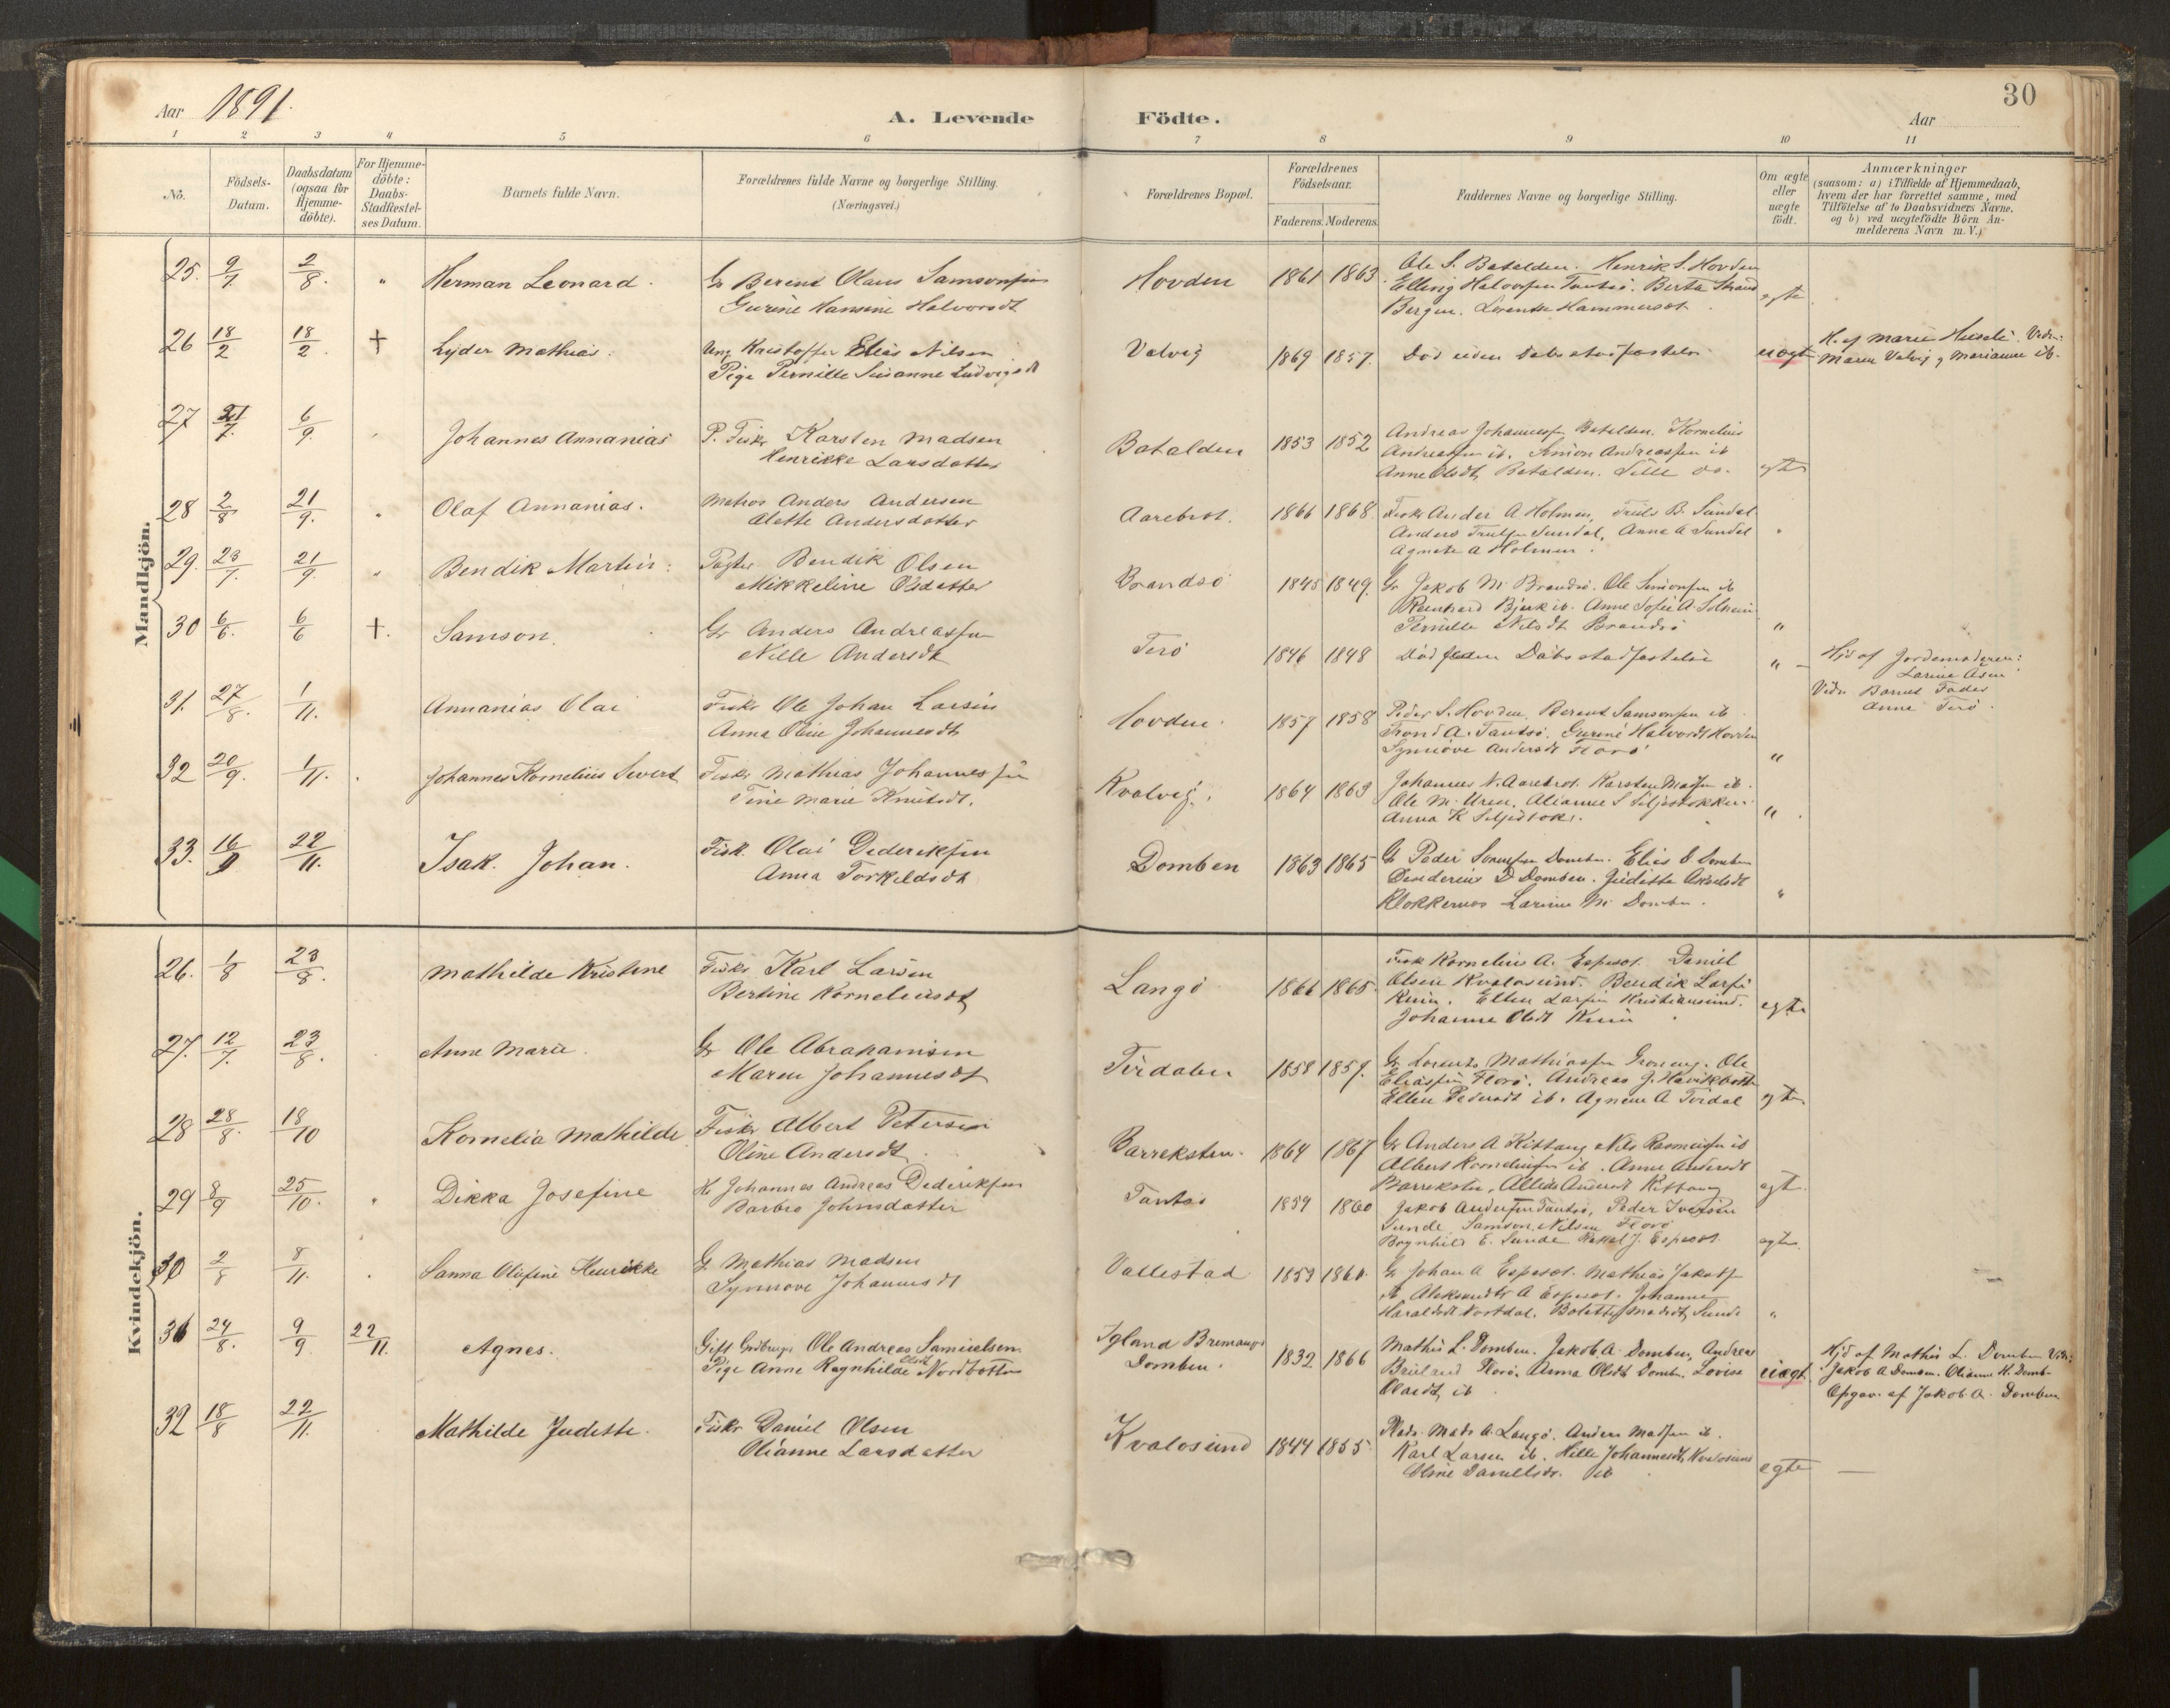 30
Aar 1891.
A. Levende Födte.
Aar
1 2 3 4 5 6 7 8 9 10 11
Nö.
Födsels-Datum.
Daabsdatum (ogsaa for Hjemme-döbte).
For Hjemme-döbte: Daabs-Stadfestel-ses Datum.
Barnets fulde Navn.
Forældrenes fulde Navne og borgerlige Stilling.
(Næringsvei.)
Forældrenes Bopæl.
Forældrenes Födselsaar.
Faderens. Moderens.
Faddernes Navne og borgerlige Stilling.
Om ægte eller uægte födt.
Anmærkninger
(saasom: a) i Tilfælde af Hjemmedaab, hvem der har forrettet samme, med Tilföielse af to Daabsvidners Navne, og b) ved uægtefödte Börn Anmelderens Navn m. V.)
Mandkjön.
25. 9/7 2/8 " Herman Leonard. Gr Berent Olaus Samsonsen
Gurine Hansine Halvorsdt
Hovden 1861 1863 Ole S. Batalden. Henrik S. Hovden
Elling Halvorsen Tantsö. Berta Strand
Bergen. Hammerset
egte
26 18/2 18/2 † Lyder Mathias. Ung. Kristoffer Elias Nilsen
Pige Pernille Susanne Ludvigsdt
Valvig 1869 1857. Död uden Dabsstadfæstelse uægt
H. af Marie Vidn:
Maren Valvig, Marianne ib.
27 /7. 6/9. Johannes Annanias P. Fisk Karsten Madsen
Henrikke Larsdatter
Batalden 1853 1852 Andreas Johannessen Batalden. Kornelius
Andreassen ib. Simon Andreassen ib
Anne Olsdt Batalden. Sille do.
egte
28 2/8 21/9. " Olaf Annanias. Matros Anders Andersen
Alette Andersdatter
Aarebrot. 1866 1868. Fisk Ander A Holmen, Truls B. Sundal
Anders Trulsen Sundal, Anna A Sundal
Agnete A Holmen.
"
29. 23/7. 21/9. " Bendik Martin. Pagter Bendik Olsen
Mikkeline Olsdatter
Brandsö 1845 1849. Gr Jakob M. Brandsö. Ole Simonsen ib
Reinhard ib. Anne Sofie A. Solheim
Pernille Nilsdt Brandsö
"
30 6/6. 6/6 †. Samson. Gr Anders Andreassen
Nille Andersdt
Terö 1846 1848 Död uden Dabsstadfæstelse "
Hjd af Jordemoderen:
Larine Asen
Vidn. Barnets Fader
Anna Terö.
31. 27/8. 1/11. Annanias Olai Fiskr Ole Johan Larsen
Anna Oline Johannesdt
Hovden. 1857 1858 Peder S. Hovden, Berent Samsonsen ib
Trond A. Tantsö. Gurine Halvorsdt Hovden
Synnöve Andersdt Florö
"
32 20/9. 1/11. Johannes Kornelius Sivert Fiskr Mathias Johannessen
Tine Marie Knutsdt.
Kvalvig. 1864 1863 Johannes N. Aarebrot. Karsten Madsen ib.
Ole M. Uren, Alianne S Seljestokken
Anna K Seljestok.
"
33. 16/9 22/11. Isak Johan. Fisk. Olai Dideriksen
Anna Torkildsdt
Domben 1863 1865 Gr Peder Domben. Elias Domben
Desiderius D Domben. Judithe Akselsdt
Klokkernes Larine M. Domben.
"
Kvindekjön.
26. 1/8 23/8. Mathilde Kristine Fiskr Karl Larsen
Bertine Korneliusdt
Langö 1866 1865. Fisk Kornelius A. Espeset. Daniel
Olsen Kvalosund. Bendik Larsen
Kinn. Ellen Larsen Kristiansund.
Johanne Olsdt Kinn
egte
27. 12/7. 23/8. Anne Marie. Gr Ole Abrahamsen
Maren Johannesdt
Tirdalen 1858 1857. Gr Lorents Mathiassen Ole
Eliassen Florö. Andreas J. Havikbotten
Ellen Pedersdt ib. Agnete A Tirdal
egte
28 28/8. 18/10 Kornelia Mathilde Fiskr Albert Petersen
Oline Andersdt
Barreksten. 1864 1867 Gr Anders A Kittang Nils Rasmussen ib
Albert Korneliussen ib. Anne Andersdt
Barreksten, Andersdt Kittang
egt.
29 8/9 25/10. " Dikka Josefine H. Johannes Andreas Dideriksen
Barbro Johnsdatter
Tantsö 1859 1860 Jakob Andersen Tantsö, Peder Iversen
Sunde, Samson Nilsen Florö
Brynhild E. Sunde Rakel J. Espeset.
egte.
30 2/8 8/11. Sanna Olufine Henrikke G. Mathias Madsen
Synnöve Johannesdt
Vallestad 1859 1860. Gr Johan A Espeset. Mathias Jakobs
ib Aleksander A Espeset. Johanne
Haraldsdt Nordal. Bolette Madsdt Sunde
"
31 24/8. 9/9. 22/11. Agnes. Gift Gdbruger Ole Andreas Samuelsen
Pige Anne Ragnhilde Olsdt Nordbotten
Igland Bremanger
Domben. 1832 1866 Mathis L. Domben. Jakob A. Domben, Andreas
Florö. Anna Olsdt Domben. Lovise
Olaidt ib
uægt.
Hjd af Mathis L. Domben Vidn:
Jakob A Domben. Olianne H. Domb.
Opgav. af Jakob A. Domben
32 18/8 22/11. Mathilde Judithe. Fiskr Daniel Olsen
Olianne Larsdatter
Kvalosund 1844 1855 Mads A. Langö. Anders Madsen ib.
Karl Larsen ib. Hille Johannesdt Kvalosund
Oline Danielsdt. ib
egte —